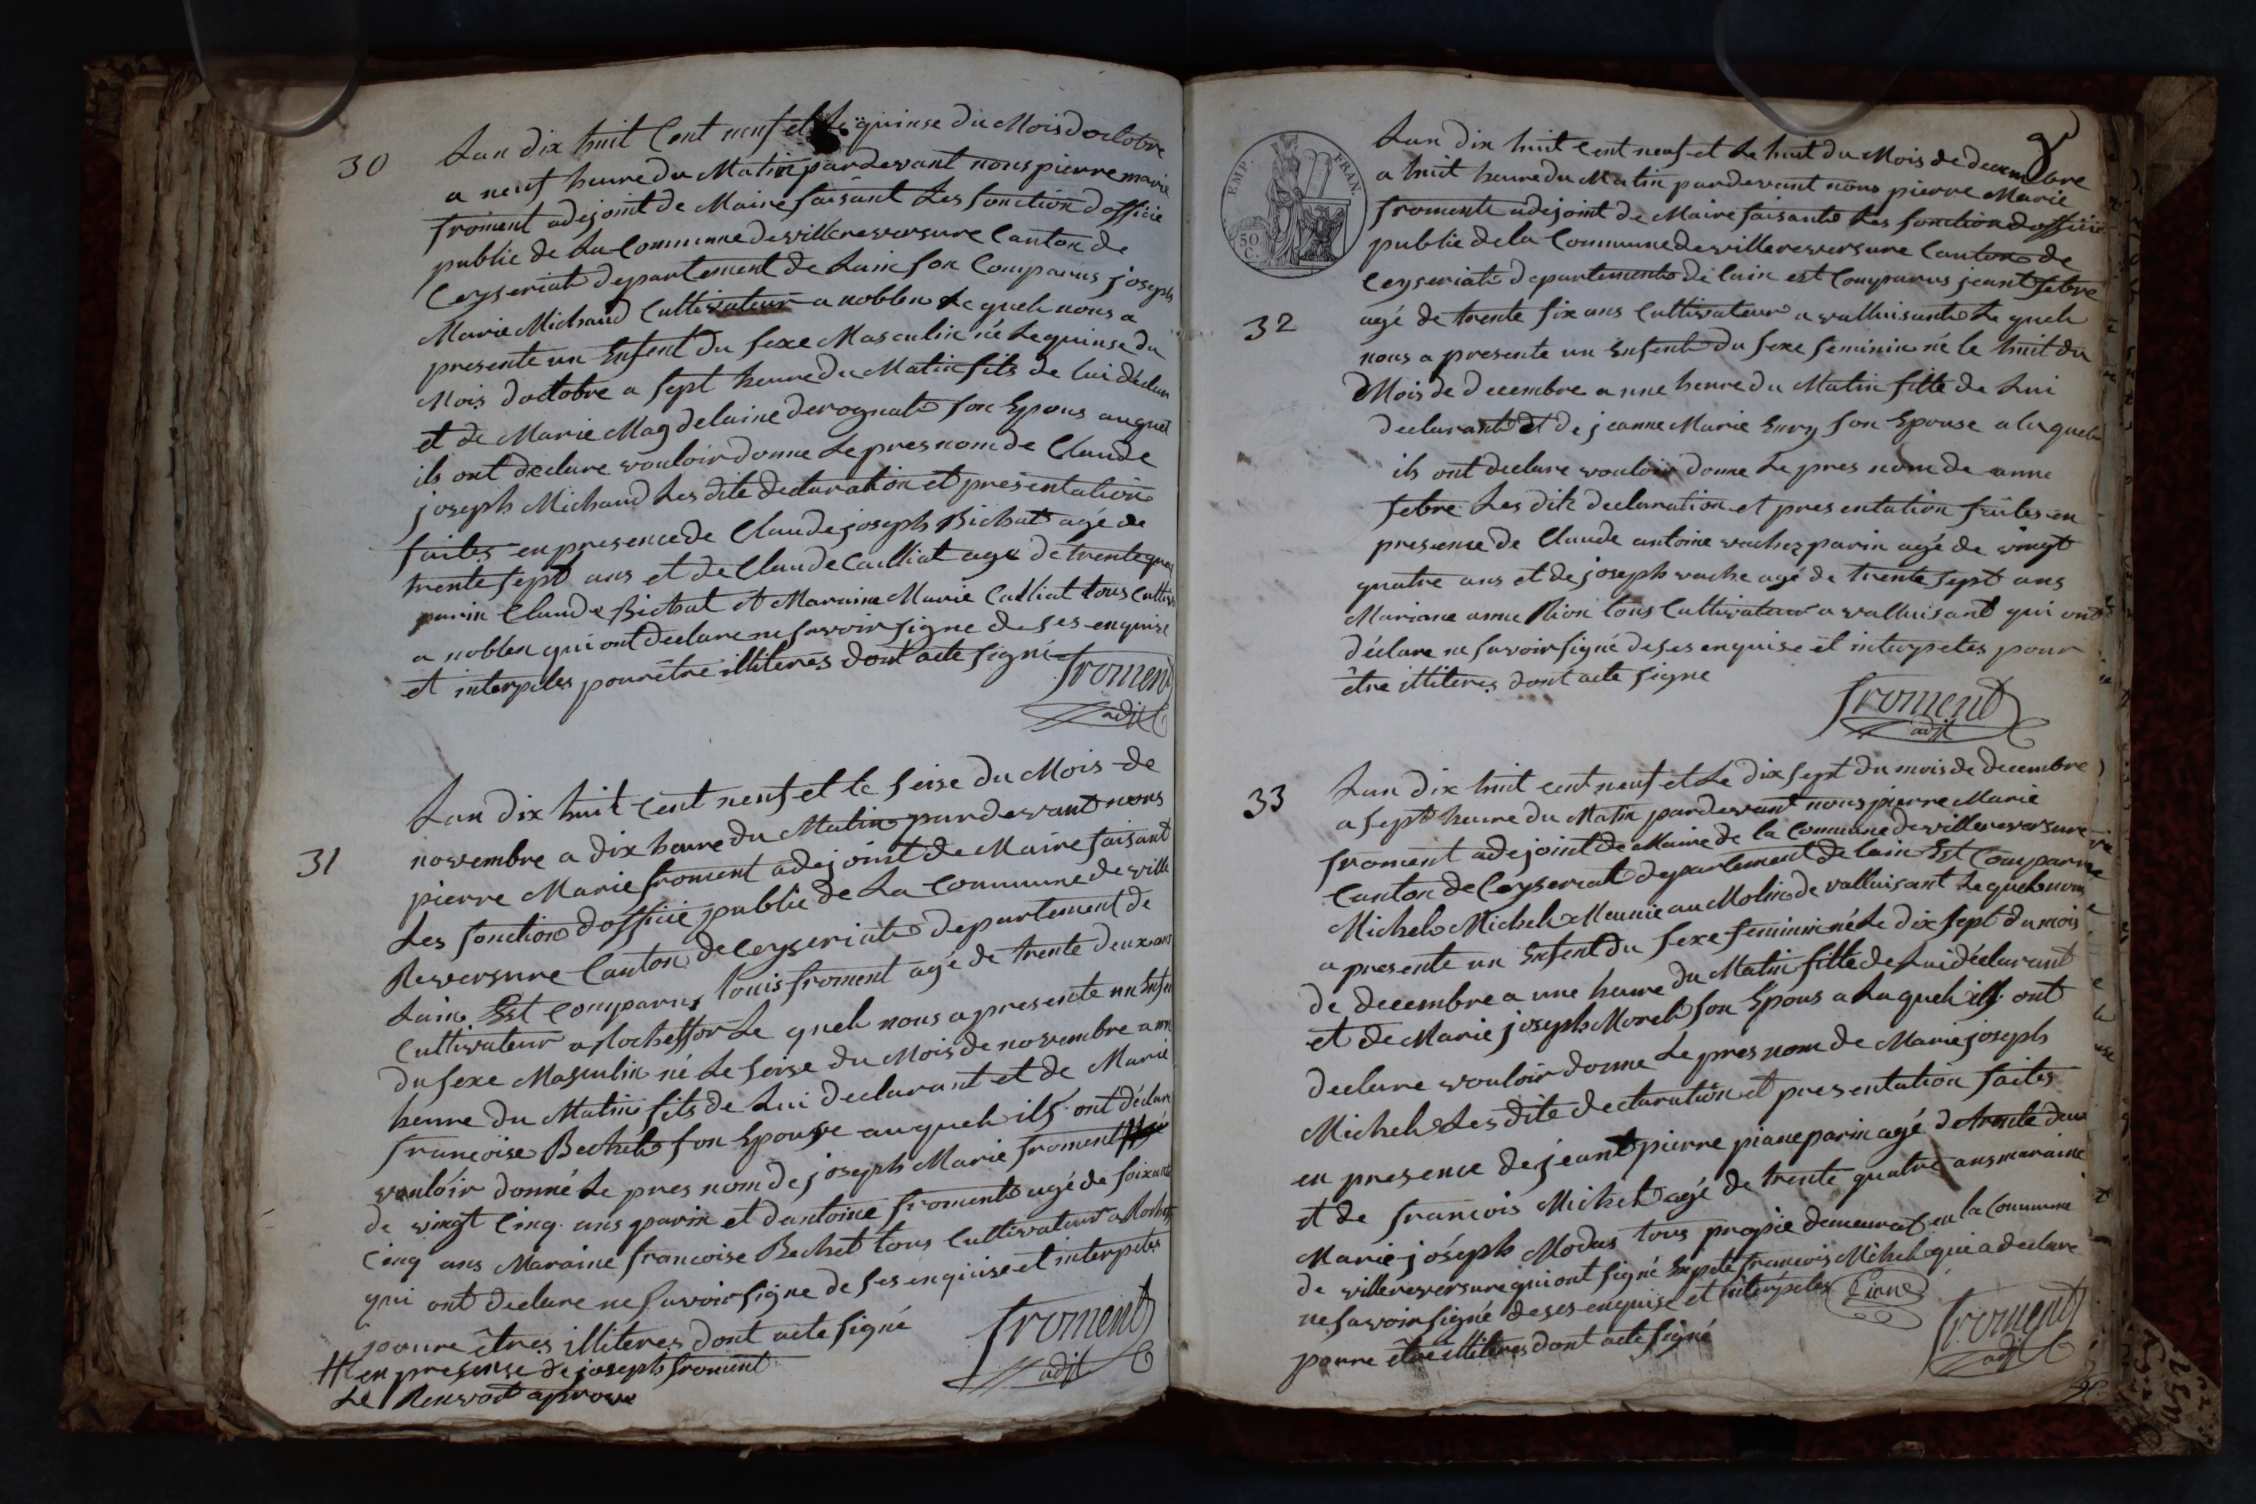 30
Lan dix huit Cent neuf et Le quinse du Mois doctobre
a neuf heure du Matin pardevant nous pierre marie
froment adejoint de Maire faisant Les fonction dofficie
public de La Commune de villereversure Canton de
Ceyseriat departement de Lain son Comparus joseph
Marie Michaud Cultivateur a noblen Le quel nous a
presente un Enfent du sexe Masculin né Le quinse du
Mois doctobre a sept heure du Matin fils de lui déclaran
et de Marie Magdelaine derognat son Epous auquel
ils ont déclare vouloir donne Le pres nom de Claude
joseph Michaud Les dite declaration et presentation
faites en presence de Claude joseph Bichat agé de
trente sept ans et de Claude Cailliat age de trente quat
parin Claude Bichat et Maraine Marie Cailliat tous Cultiv
a noblen qui ont declare ne savoir signe de ses enquise
et interpeles pour être illiteres dont acte signé
froment
adjt
31
Lan dix huit Cent neuf et le seise du Mois de
novembre a dix heure du Matin pardevant nous
pierre Marie froment adejoint de Maire faisant
Les fonction dofficie public de La Commune de ville
Reversure Canton de Ceyseriat departement de
Lain Est Comparus louis froment agé de trente deux ans
Cultivateur a Rocheffor Le quel nous a presente un Enfen
du sexe Masculin né Le seise du Mois de novembre a un
heure du Matin fils de Lui declarant et de Marie
francoise Bechet son Epouse auquel ils ont déclare
vouloir donné Le pres nom de joseph Marie froment #
de vingt Cinq ans parin et dantoine froment agé de soixante
Cinq ans Maraine francoise Bechet tous Cultivateur a Rocheff
qui ont declare ne savoir signe de ses enquise et interpeles
poure êtres illiteres dont acte signé
froment
adjt
# en presense de joseph froment
Le Renvoit aprouve
EMP. FRAN.
50 C.
32
Lan dix huit Cent neuf et Le huit du Mois de decembre
a huit heure du Matin pardevant nous pierre Marie
froment adejoint de Maire faisant Les fonction dofficie
public de la Commune de villereversure Canton de
Ceyseriat departement de lain est Comparus jeant febre
agé de trente six ans Cultivateur a valluisant Le quel
nous a presente un Enfent du sexe feminin né le huit du
Mois de decembre a une heure du Matin fille de Lui
declarant et de jeanne Marie Envry son Epouse a laquel
ils ont declare vouloir donne Le pres nom de anne
febre Les dite declaration et presentation faites en
presence de Claude antoine vachez parin agé de vingt
quatre ans et de joseph vache agé de trente sept ans
Mariane anne Rion tous Cultivateur a valluisant qui ont
déclare ne savoir signé de ses enquise et interpeles pour
être illiteres dont acte signe
froment
adjt
33
Lan dix huit cent neuf et Le dix sept du mois de decembre
a sept heure du Matin pardevant nous pierre Marie
froment adejoint de Maire de la Commune de villereversure
Canton de Ceyseriat departement de lain Est Comparue
Michel Michel Meunie au Molin de valluisant Le quel nous
a presente un Enfent du sexe feminin né Le dix sept du mois
de decembre a une heure du Matin fille de Lui déclarant
et de Marie joseph Morel son Epous a Laquel ils ont
declare vouloir donne Le pres nom de Marie joseph
Michel Les dite declaration et presentation faites
en presence de jeant pierre piane parin agé de trente deux
et de francois Michel agé de trente quatre ans maraine
Marie joséph Modas tous propie demeurat en la Commune
de villereversure qui ont signé Exepté francois Michel qui a declare
ne savoir signé de ses enquise et interpeles Piane
poure être illiteres dont acte signé
froment
adjt